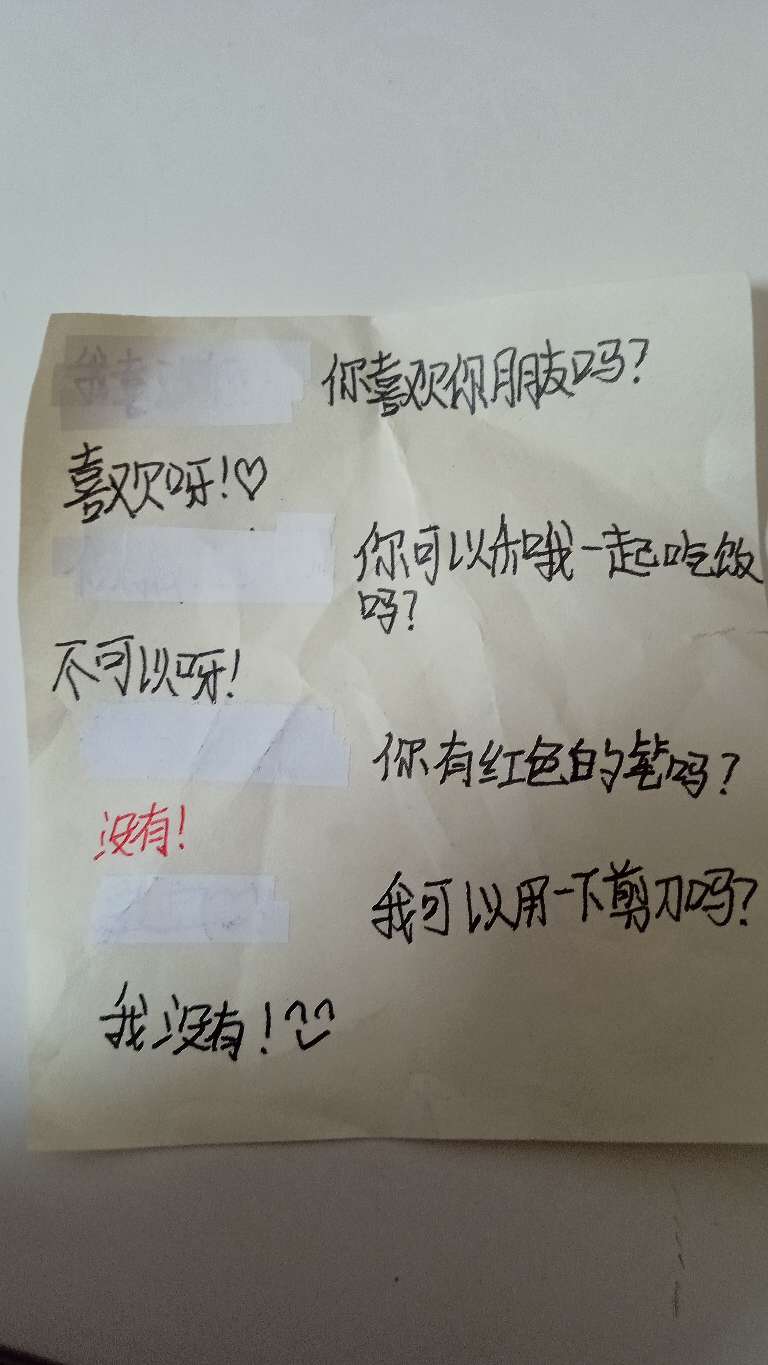 你喜欢你朋友吗？
喜欢呀！♡
你可以和哦一起吃饭
吗？
不可以呀！
你有红色的笔吗？
没有！
我可以用一下剪刀吗？
我没有！